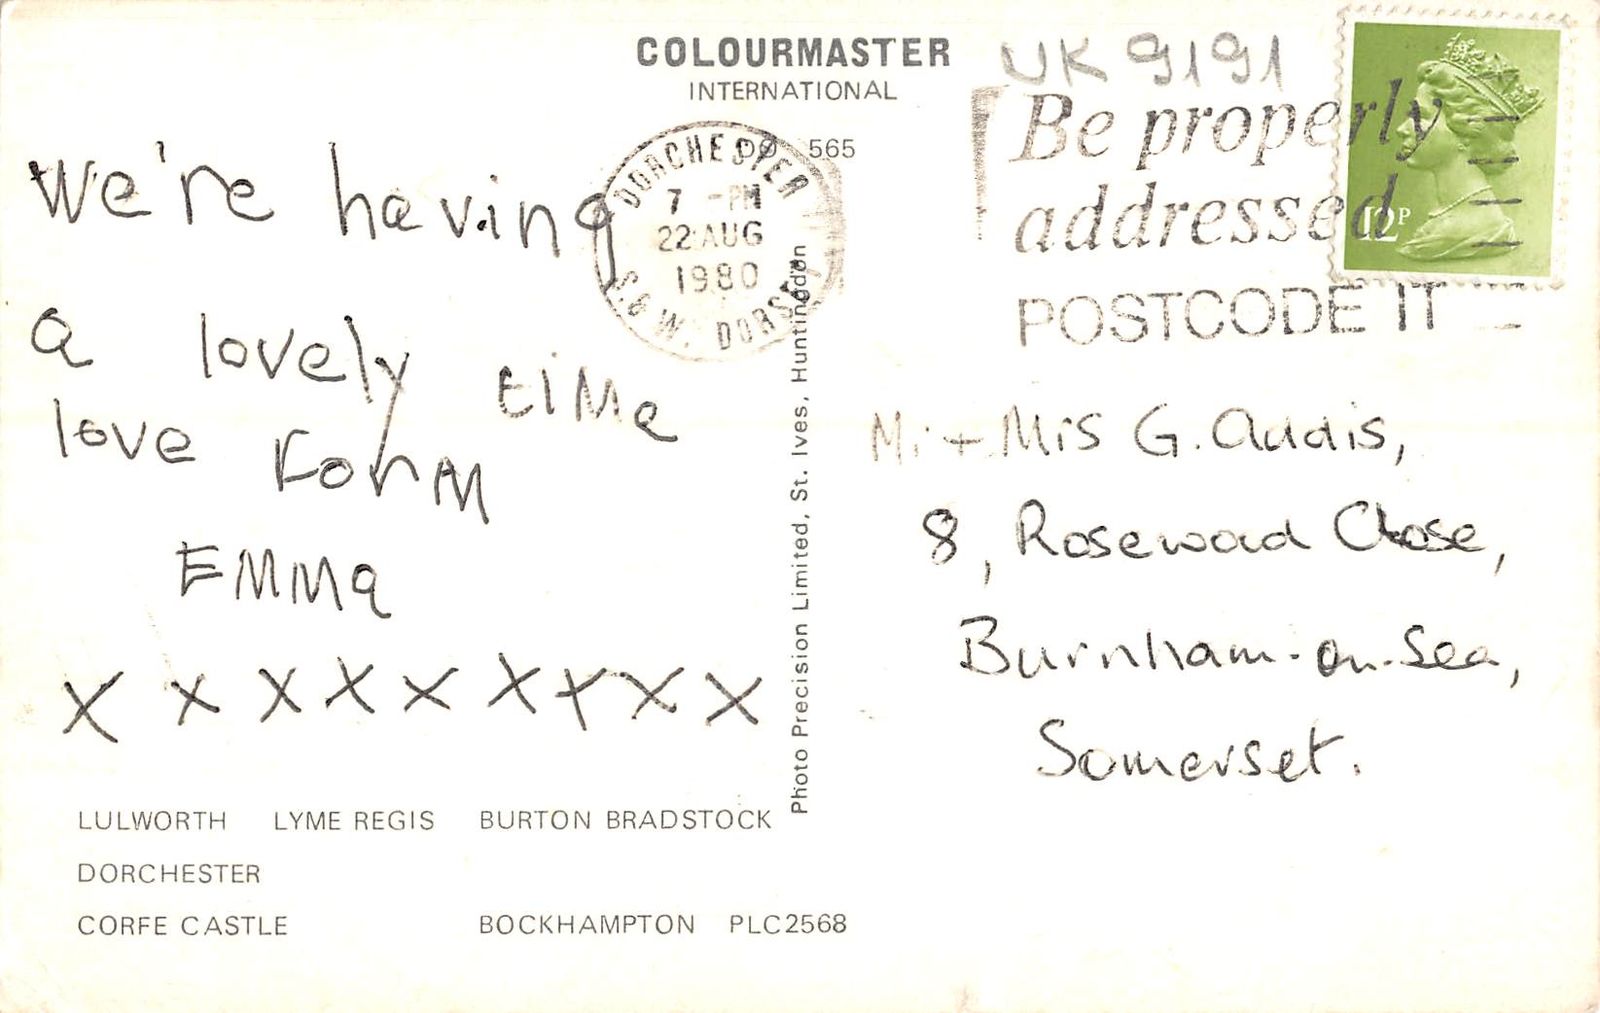 COLOURMASTER
INTERNATIONAL
UK 9191
565
DORCHESTER
7 -PM
22 AUG
1980
S.& W. DORSET
Be properly
addressed
POSTCODE IT
12P
We're having
a lovely time
love form
Emma
x x x x x x x x x
Mr + Mrs G. Addis,
8, Rosewood Close,
Burnham-on-Sea,
Somerset.
Photo Precision Limited, St. Ives, Huntingdon
LULWORTH LYME REGIS BURTON BRADSTOCK
DORCHESTER
CORFE CASTLE BOCKHAMPTON PLC2568